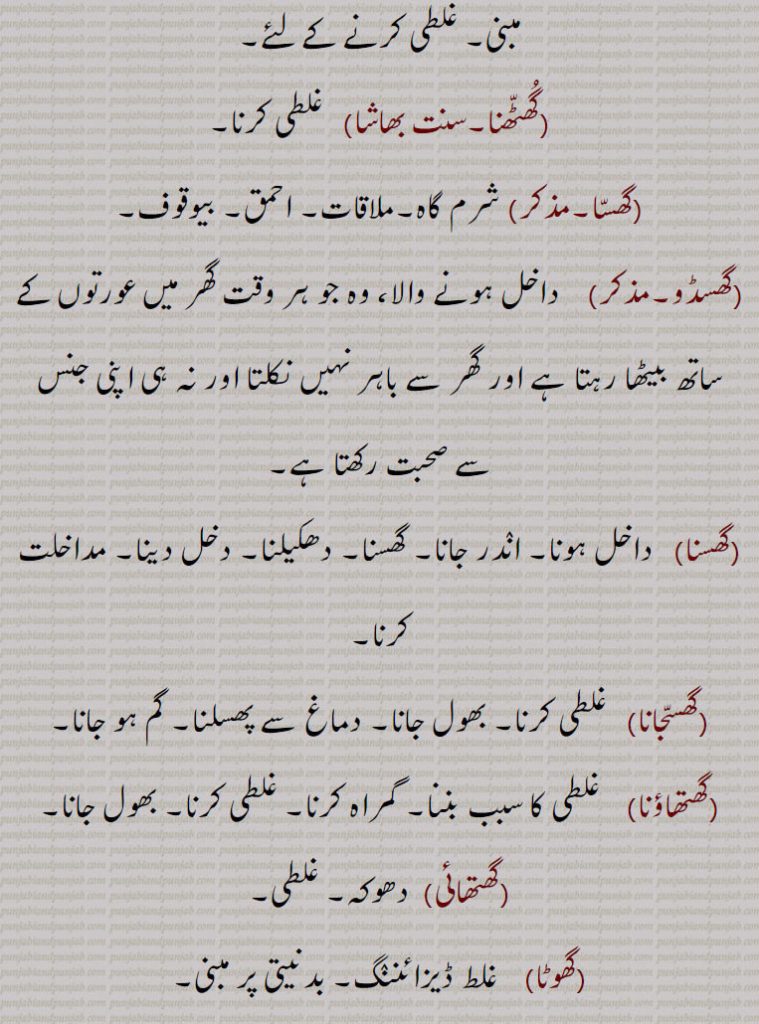 مبنی۔ غلطی کرنے کے لئے۔
(گُھٹّھنا۔سنت بھاشا) غلطی کرنا۔
(گھسّا۔مذکر) شرم گاہ۔ملاقات۔ احمق۔ بیوقوف۔
(گھسڈو۔مذکر) داخل ہونے والا، وہ جو ہر وقت گھر میں عورتوں کے
ساتھ بیٹھا رہتا ہے اور گھر سے باہر نہیں نکلتا اور نہ ہی اپنی جنس
سے صحبت رکھتا ہے۔
(گھسنا) داخل ہونا۔ انْدر جانا۔ گھسنا۔ دھکیلنا۔ دخل دینا۔ مداخلت
کرنا۔
(گھسّجانا) غلطی کرنا۔ بھول جانا۔ دماغ سے پھسلنا۔ گم ہو جانا۔
(گھتھاؤنا) غلطی کا سبب بننا۔ گمراہ کرنا۔ غلطی کرنا۔ بھول جانا۔
(گھتھائی) دھوکہ۔ غلطی۔
(گھوٹا) غلط ڈیزائننْگ۔ بدنیتی پر مبنی۔